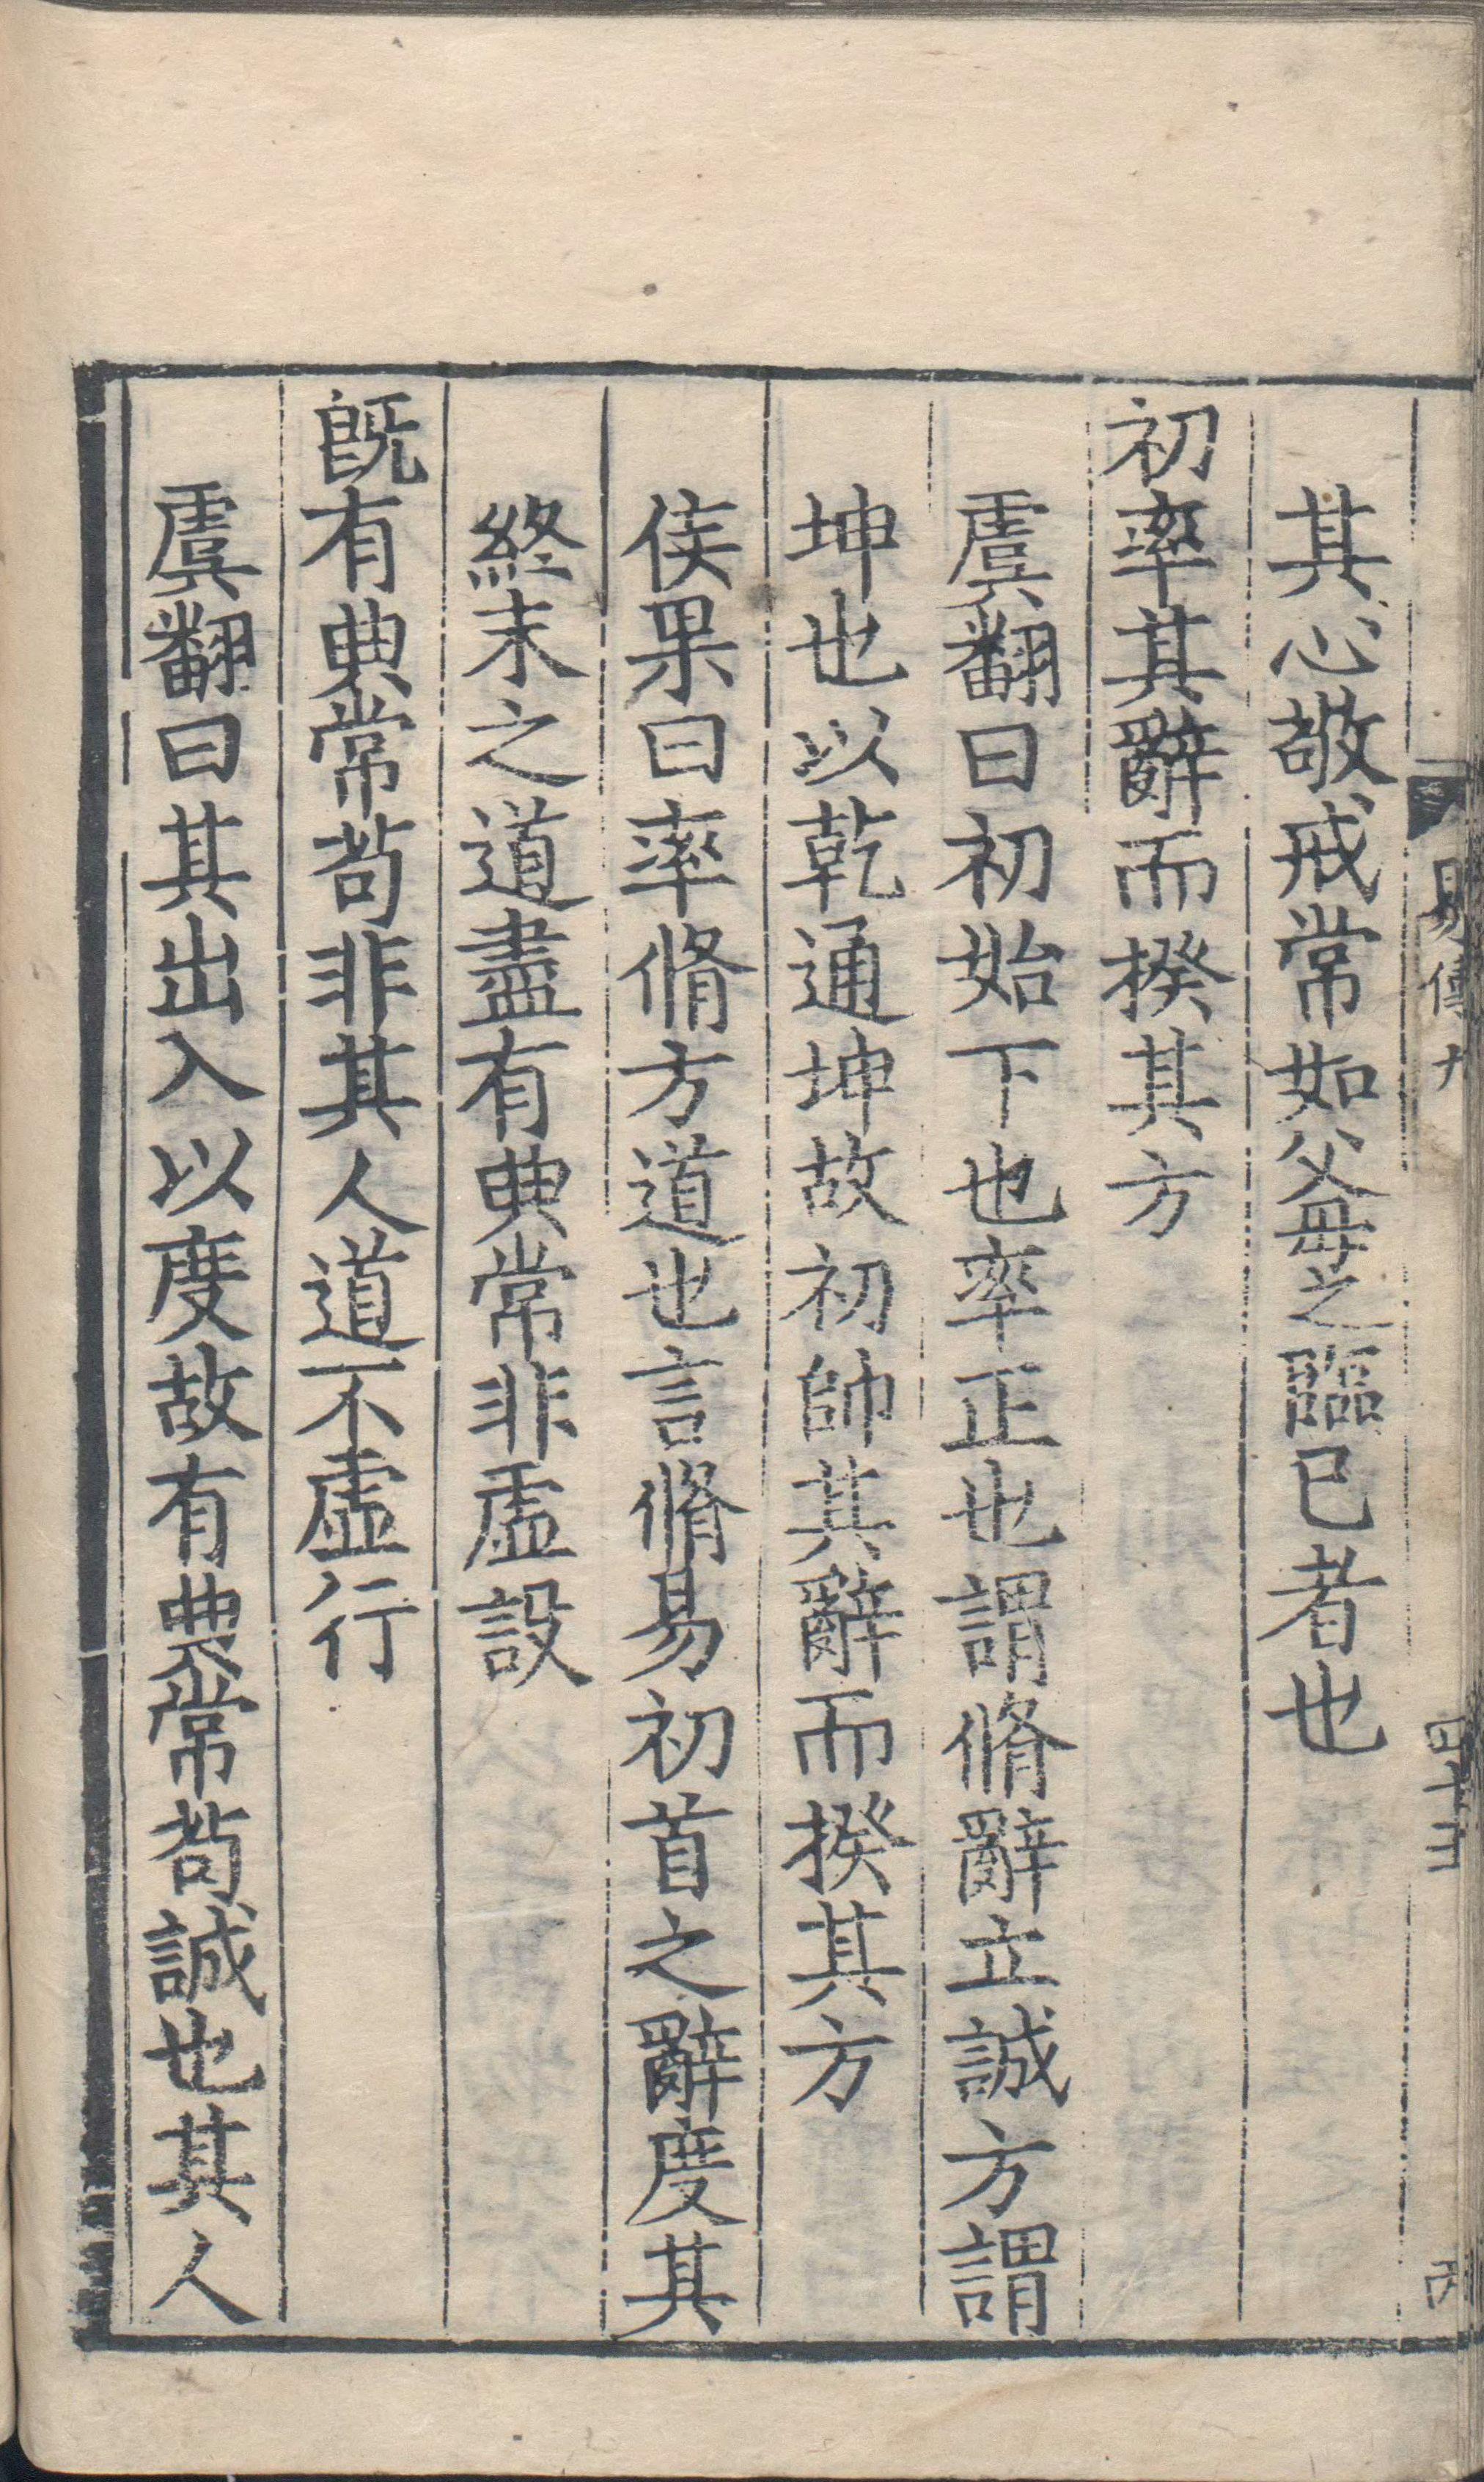 其心敬戒常如父母之臨己者也
初率其辭而揆其方
虞翻曰初始下也率正也謂脩辭立誠方謂
坤也以乾通坤故初帥其辭而揆其方
侯果曰率脩方道也言脩易初首之辭度其
終末之道盡有典常非虛設
旣有典常苟非其人道不虛行
虞翻曰其出入以度故有典常苟誠也其人